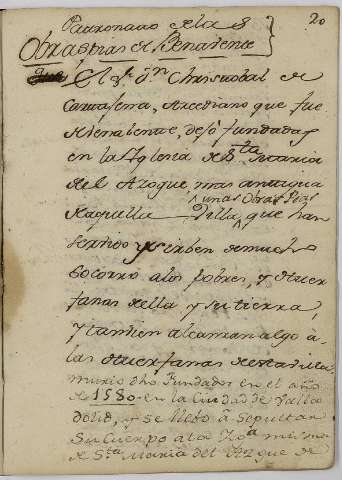 Patronato de las
20
Obras pias de Benavente
El Sr. Dn Christobal de
, Arcediano que fue
de Benavente, dejó fundadas
en la Iglesia de Sta Maria
del Azogue, mas antigua
unas Obras Pias
de aquella Villa, que han
servido y sirben de mucho
socorro a los pobres, y Huer
fanas de ella y su tierra,
y tambien alcanzan algo à
las Huerfanas de esta villa
murio dho Fundador en el año
de 1580 en la Ciudad de Valla
dolid, y se llebó à sepultar
su cuerpo a la Yga misma
de Sta Maria del Azogue de